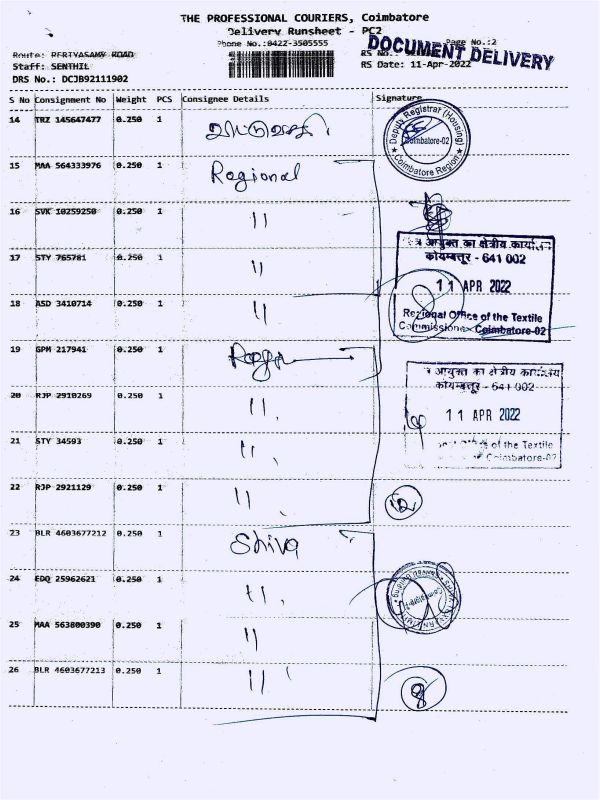 THE PROFESSIONAL COURIERS, Coimbatore
Delivery Runsheet - PC2
Phone No.:0422-3505555
Page No.:2
DOCUMENT DELIVERY
Route: PERIYASAMY ROAD
Staff: SENTHIL
RS Date: 11-Apr-2022
DRS No.: DCJB92111902
S No Consignment No Weight PCS Consignee Details Signature
14 TRZ 145647477 0.250 1
Deputy Registrar (Housing)
Coimbatore-02
Coimbatore Region
15 MAA 564333976 0.250 1 Regional
16 SVK 10259250 0.250 1 "
17 STY 765781 0.250 1 "
आयुक्त का क्षेत्रीय
कोयम्बत्तूर - 641 002
11 APR 2022
Regional Office of the Textile
Commissioner Coimbatore-02
18 ASD 3410714 0.250 1 "
19 GPM 217941 0.250 1
20 RJP 2910269 0.250 1 "
आयुक्त का क्षेत्रीय
कोयम्बत्तूर - 641 002
11 APR 2022
of the Textile
Coimbatore-02
21 STY 34593 0.250 1 "
22 RJP 2921129 0.250 1 "
23 BLR 4603677212 0.250 1 Shiva
24 EDQ 25962621 0.250 1 "
25 MAA 563800390 0.250 1 "
26 BLR 4603677213 0.250 1 "